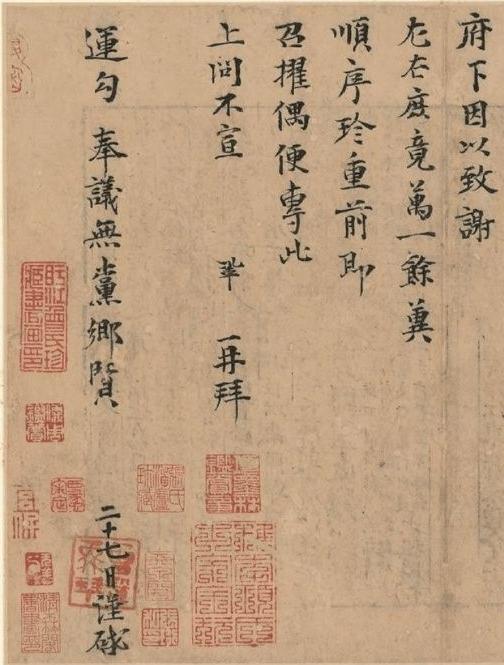 府下因以致謝
左右庶竟萬一餘冀
順序珍重前即
召擢偶便專此
上問不宣 鞏 再拜
運勾 奉議無黨鄉賢
二十七日謹啓